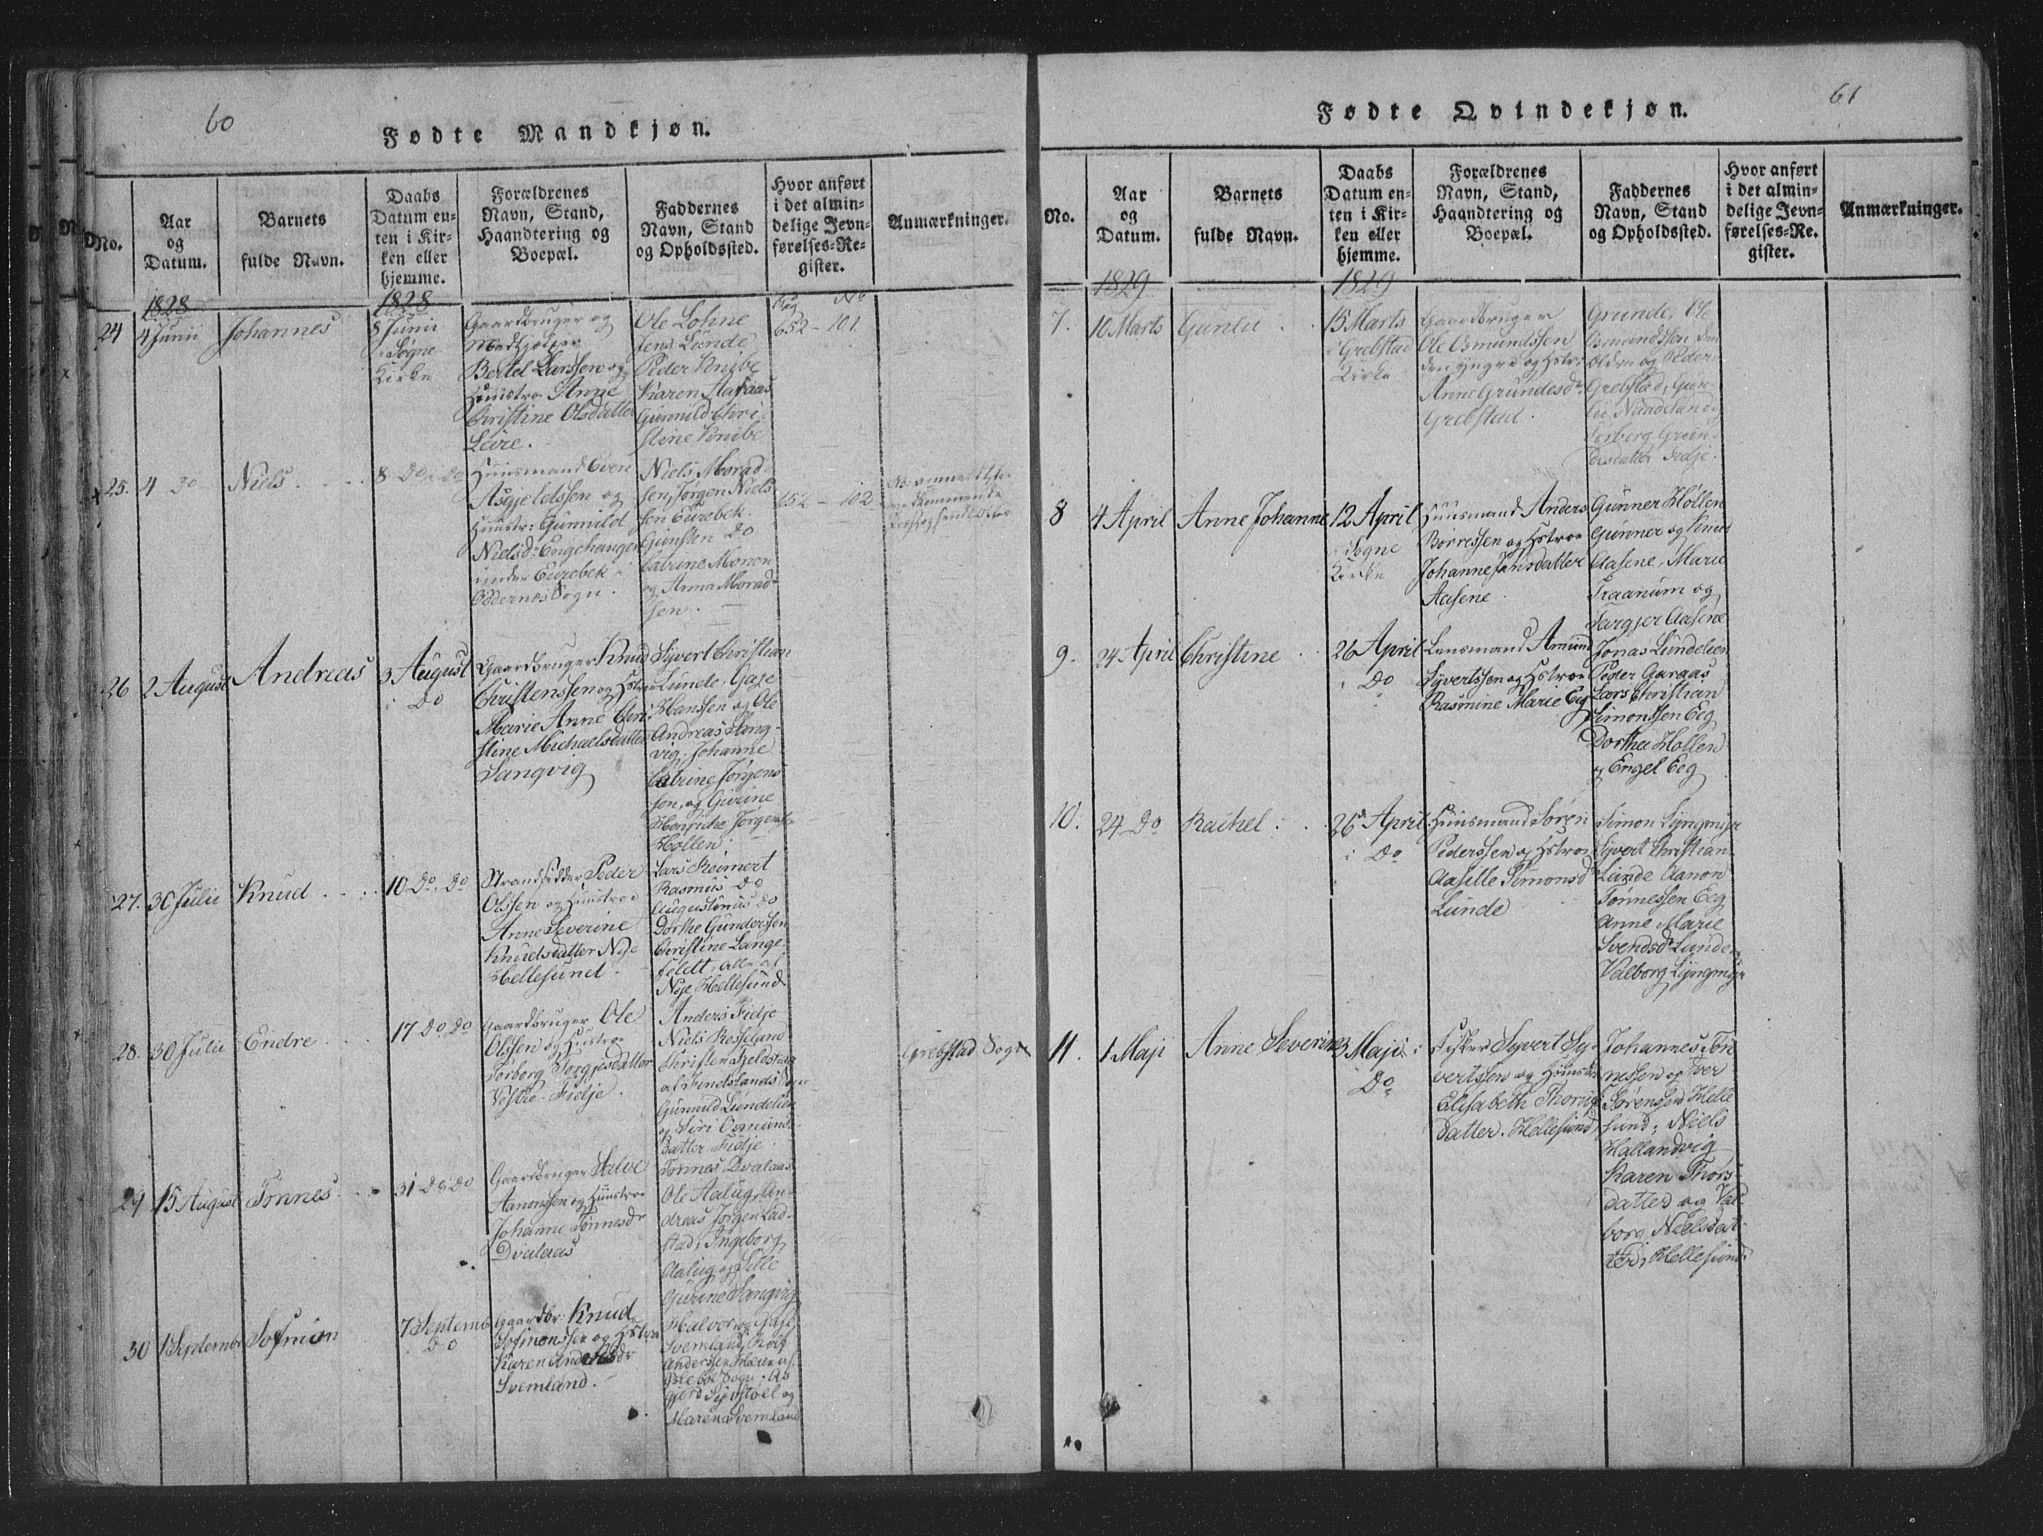 60
Fødte Mandkjøn.
No.
Aar
og
Datum.
Barnets
fulde Navn.
Daabs
Datum en-
ten i Kir-
ken eller
hjemme.
Forældrenes
Navn, Stand,
Haandtering og
Boepæl.
Faddernes
Navn, Stand
og Opholdssted.
Hvor anført
i det almin-
delige Jevn-
førelses-Re-
gister.
Anmærkninger.
1828
1828
24
4 Junii
Johannes
8 Junii
i Søgne
Kirke
Gaardbruger og
Bertel Larssen og
Huustroe Anne
Christine Olsdatter
Leire.
Ole Lohne
Jens Lunde
Peder Knibe
Karen Aaraas
Gunnild Chri-
stine Knibe
652 - 101
25.
4 Do
Niels
8 Do i Do
Huusmand Even
Asgjeldssen og
Huustr: Gunnild
Nielsd: Engehaugen
under Eurebek
Oddernes Sogn.
Niels Morad-
sen, Jørgen Niels-
sen Eurebek
Gunsten Do
Cabrine Monen
og Anna Morad-
sen.
152 - 102
26
2 August
Andreas
3 August
i Do
Gaardbruger Knud
Christenssen og Hstroe
Marie Anne Chri-
stine Michaelsdatter
Langvig
Syvert Christian
Lunde, Gage
Hanssen og Ole
Andreas Lang-
vig, Johanne
Cabrine Jørgens-
sen, og Gurine
Henriche Jørgenss
Høllen.
27.
30 Julii
Knud
10 Do Do
Strandsidder Peder
Olssen og Huustroe
Anne Severine
Knudsdatter Nye
Hellesund.
Lars Reimert
Rasmus Do
Augustinus Do
Dorthe Gunderssen
Christine Lange-
feldt, alle af
Nye Hellesund
28.
30 Julii
Endre
17 Do Do
Gaardbruger Ole
Olssen og Hustroe
Torborg Torgjesdatter
Vestre Fidje.
Anders Fidje
Niels Rosseland
Christen Heldstad
af Findslands Sogn
Gunnild Lundelien
og Siri Osmunds-
datter Fidje.
Grebstad Sogn
29
15 August
Tønnes
31 Do Do
Gaardbruger Salve
Aanonssen og Huustroe
Johanne Tønnesdr
Dvalaas
Tønnes Dvalaas
Ole Aalug, An-
dreas Jørgen Lad-
stad, Ingeborg
Aalug og Sille
Gurine Langvig
30
1 Septembr
Sofnion
7 Septemb
Do
Gaardbr: Knud
Sofnionssen og Hstroe
Karen Andersdr
Svemland.
Halvor og Gage
Svemland, Rolf
Anderssen
gjerd Sivstøel og
Maren Svemland
61
Fødte Qvindekjøn.
No.
Aar
og
Datum.
Barnets
fulde Navn.
Daabs
Datum en-
ten i Kir-
ken eller
hjemme.
Forældrenes
Navn, Stand,
Haandtering og
Boepæl.
Faddernes
Navn, Stand
og Opholdssted.
Hvor anført
i det almin-
delige Jevn-
førelses-Re-
gister.
Anmærkninger.
1829
1829
7.
10 Marts
Gunlu
15 Marts
i Grebstad
Kirke
Gaardbruger
Ole Osmundssen
den yngre og Hstr:
Anne Grundesdr
Grebstad.
Grunde, Ole
Osmundssen den
Olden og Peder
Grebstad, Gun-
lu Naadeland
Torberg Grun-
desdatter Fidje.
8
4 April
Anne Johanne
12 April
i Søgne
Kirke
Huusmand Anders
Børressen og Hstroe
Johanne Jensdatter
Aasene
Gunner Høllen
Gunner og Knud
Aasene, Marie
Traanum og
Targjer Aasene
9.
24 April
Christine
26 April
i Do
Lensmand Amund
Syvertssen og Hstroe
Rasmine Marie Eg
Jonas Lundelien
Peder Aaraas
Lars Christian
Simonssen Eeg
Dorthe Høllen
og Engel Eeg
10.
24 Do
Rachel
26 April
i Do
Huusmand Søren
Pederssen og Hstroe
Aasille Simonsd
Lunde
Simon Lyngmyr
Syvert Christian
Lunde Aanon
Tønnessen Eeg
Anne Marie
Svendsdr Lunde og
Valborg Lyngmyr
11.
1 Maji
Anne Severine
3 Maji
Do
Fisker Syvert Sy-
vertssen og Huustr
Elisabeth Thors-
datter. Hellesund
Johannes Tøn-
nessen og Iver
Sørenssen Helle-
sund, Niels
Hallandvig
Karen Thors-
datter og Val-
borg Nielsdat-
ter, Hellesund.